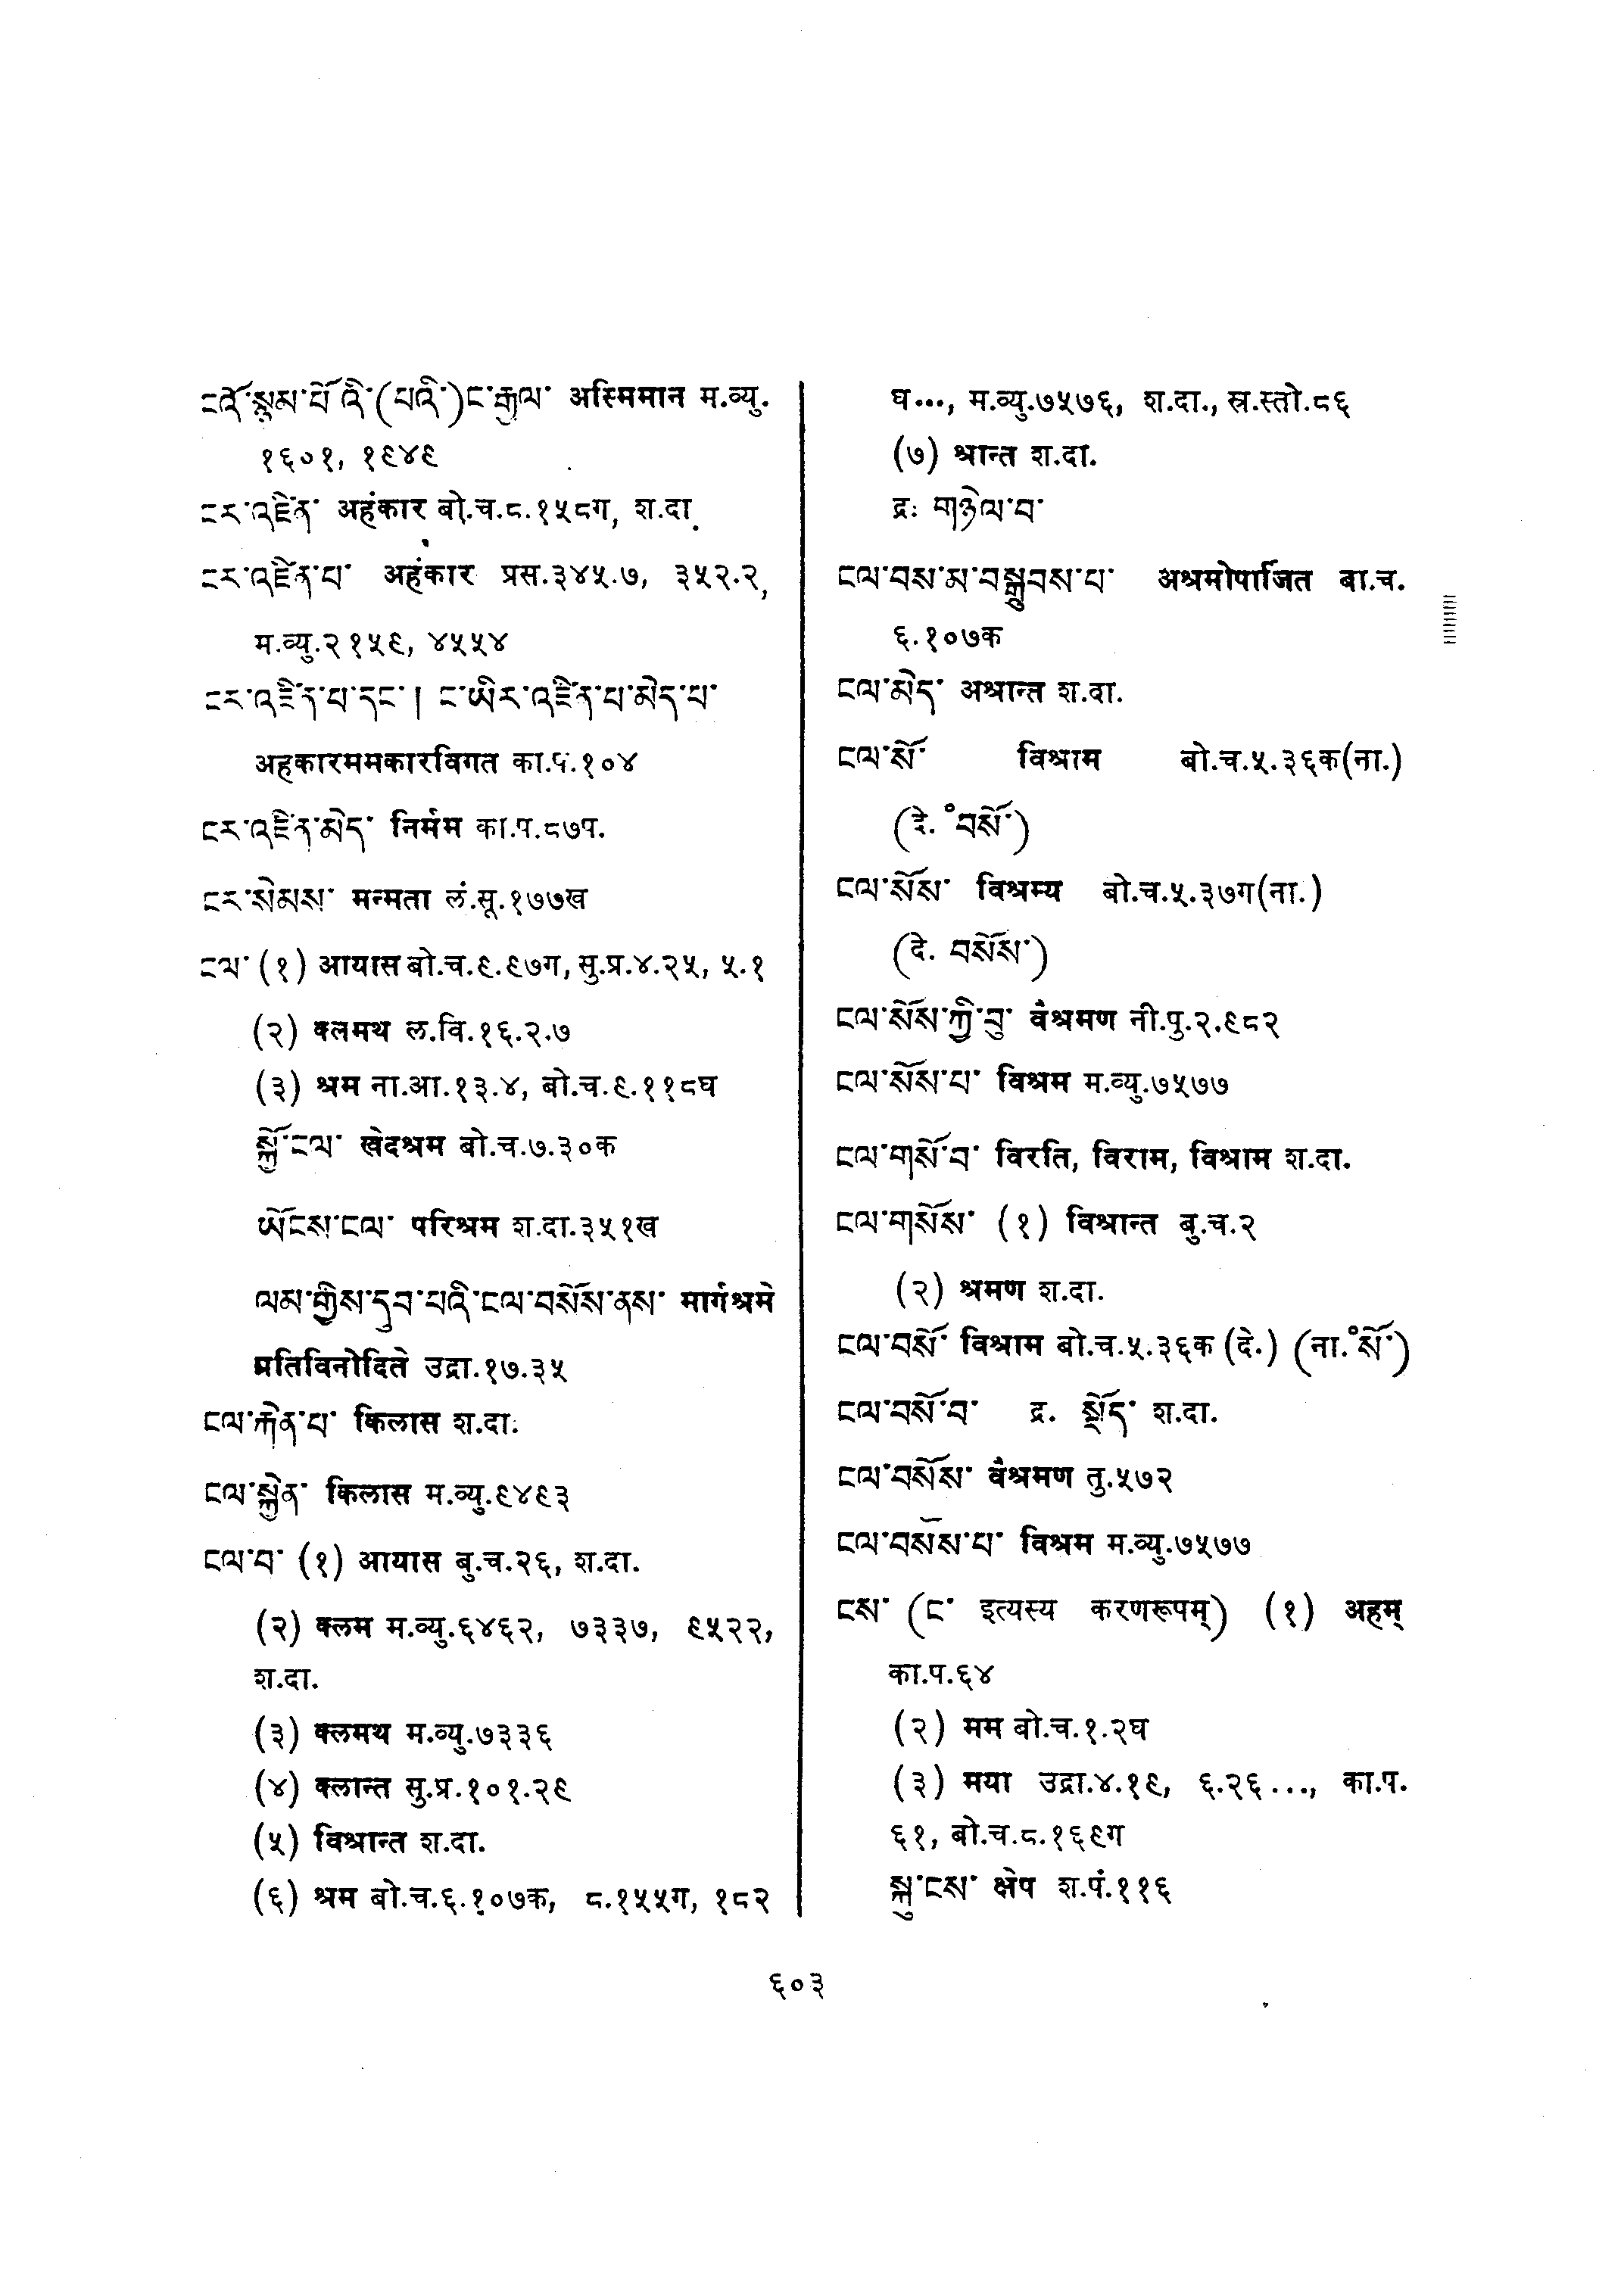 ངའོ་སྙམ་པོ་འི་(པའི་)ང་རྒྱལ་ अस्मिमान म.व्यु.
१६०१, १९४९
ངར་འཛིན་ अहंकार बो.च.८.१५८ग, श.दा.
ངར་འཛིན་པ་ अहंकार प्रस.३४५.७, ३५२.२,
म.व्यु.२१५९, ४५५४
ངར་འཛིན་པ་དང་། ང་ཡིར་འཛིན་པ་མེད་པ་
अहकारममकारविगत का.प.१०४
ངར་འཛིན་མེད་ निर्मम का.प.८७प.
ངར་སེམས་ मन्मता लं.सू.१७७ख
ངལ་ (१) आयास बो.च.९.९७ग, सु.प्र.४.२५, ५.१
(२) क्लमथ ल.वि.१६.२.७
(३) श्रम ना.आ.१३.४, बो.च.९.११८घ
སྐྱོ་ངལ་ खेदश्रम बो.च.७.३०क
ཡོངས་ངལ་ परिश्रम श.दा.३५१ख
ལམ་གྱིས་དུབ་པའི་ངལ་བསོས་ནས་ मार्गश्रमे
प्रतिविनोदिते उद्रा.१७.३५
ངལ་རྐེན་པ་ किलास श.दा.
ངལ་སྐྱེན་ किलास म.व्यु.९४९३
ངལ་བ་ (१) आयास बु.च.२६, श.दा.
(२) क्लम म.व्यु.६४६२, ७३३७, ९५२२,
श.दा.
(३) क्लमथ म.व्यु.७३३६
(४) क्लान्त सु.प्र.१०१.२९
(५) विश्रान्त श.दा.
(६) श्रम बो.च.६.१०७क, ८.१५५ग, १८२
घ..., म.व्यु.७५७६, श.दा., स्र.स्तो.८६
(७) श्रान्त श.दा.
द्रः གཉེལ་བ་
ངལ་བས་མ་བསྒྲུབས་པ་ अश्रमोपार्जित बा.च.
६.१०७क
ངལ་མེད་ अश्रान्त श.दा.
ངལ་སོ་ विश्राम बो.च.५.३६क(ना.)
(दे. ॰བསོ་)
ངལ་སོས་ विश्रम्य बो.च.५.३७ग(ना.)
(दे. བསོས་)
ངལ་སོས་ཀྱི་བུ་ वैश्रमण नी.पु.२.९८२
ངལ་སོས་པ་ विश्रम म.व्यु.७५७७
ངལ་གསོ་བ་ विरति, विराम, विश्राम श.दा.
ངལ་གསོས་ (१) विश्रान्त बु.च.२
(२) श्रमण श.दा.
ངལ་བསོ་ विश्राम बो.च.५.३६क (दे.) (ना.॰སོ་)
ངལ་བསོ་བ་ द्र. སྡོད་ श.दा.
ངལ་བསོས་ वैश्रमण तु.५७२
ངལ་བསོས་པ་ विश्रम म.व्यु.७५७७
ངས་ (ང་ इत्यस्य करणरूपम्) (१) अहम्
का.प.६४
(२) मम बो.च.१.२घ
(३) मया उद्रा.४.१९, ६.२६..., का.प.
६१, बो.च.८.१६९ग
སྐུ་ངས་ क्षेप श.पं.११६
६०३